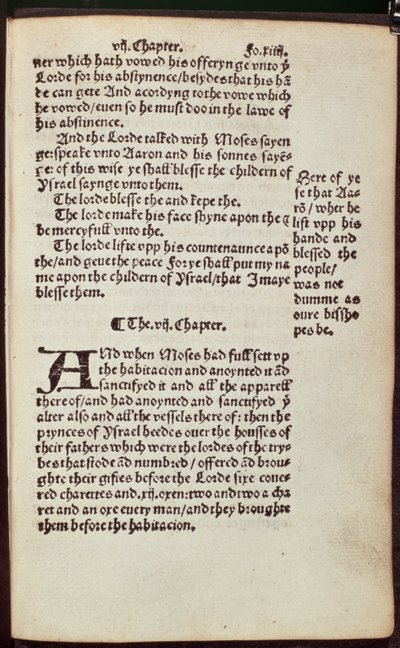 vij. Chapter. Fo. xiiij.
ner which hath vowed his offerynge vnto ẏ
Lorde for his abstynence/besydes that his hā
de can gete And acordyng to the vowe which
he vowed/even so he must doo in the lawe of
his abstinence.
And the Lorde talked with Moses sayen
ge: speake vnto Aaron and his sonnes sayē-
ge: of this wise ye shall blesse the childern of
Ysrael saynge vnto them.
The lorde blesse the and kepe the.
The lorde make his face shyne apon the &
be mercyfull vnto the.
The lorde lifte vpp his countenaunce apō
the/and geue the peace For ye shall put my na
me apon the childern of Ysrael/that I maye
blesse them.
Here of ye
se that Aa-
rō/ when he
lift vpp his
hande and
blessed the
people/
was not
dumme as
oure bissho
pes be.
¶ The. vij. Chapter.
ANd when Moses had full sett vp
the habitacion and anoynted it ād
sanctifyed it and all the apparell
there of/and had anoynted and sanctifyed ẏ
alter also and all the vessels there of: then the
prynces of Ysrael heedes ouer the housses of
their fathers which were the lordes of the try-
bes that stode ād numbred/ offered ād brou-
ghte their giftes before the Lorde sixe coue-
red charettes and .xij. oxen: two and two a cha
ret and an oxe euery man/and they broughte
them before the habitacion.